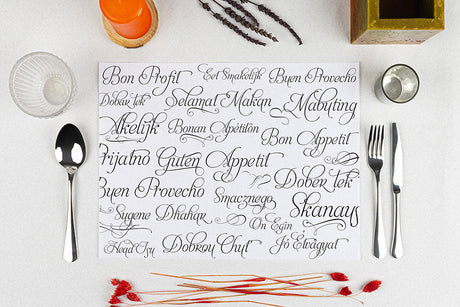 Bon Profit Eet Smakelijk Buen Provecho
Dobar tek Selamat Makan Mabuting
Akelijk Bonan Apetiton Bon Appetit
Prijatno Guten Appetit
Buen Provecho Smacznego Dober tek
Sygene Dhahar On Egin Skanaus
Dobrou Chuť Jó Étvágyat